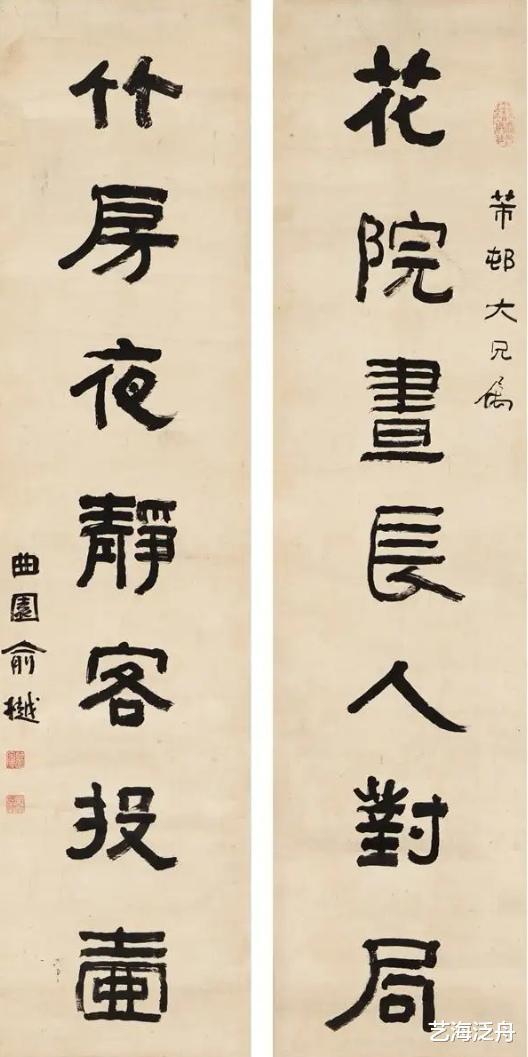 芾邨大兄屬
花院晝長人對局
竹房夜靜客投壺
曲園俞樾
艺海泛舟